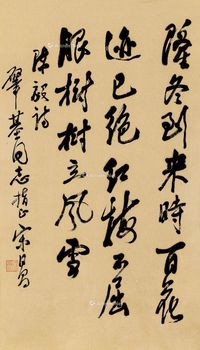 隆冬到来时百花
迹已绝红梅不屈
服树树立风雪
陈毅诗
肇基同志指正 宋日昌